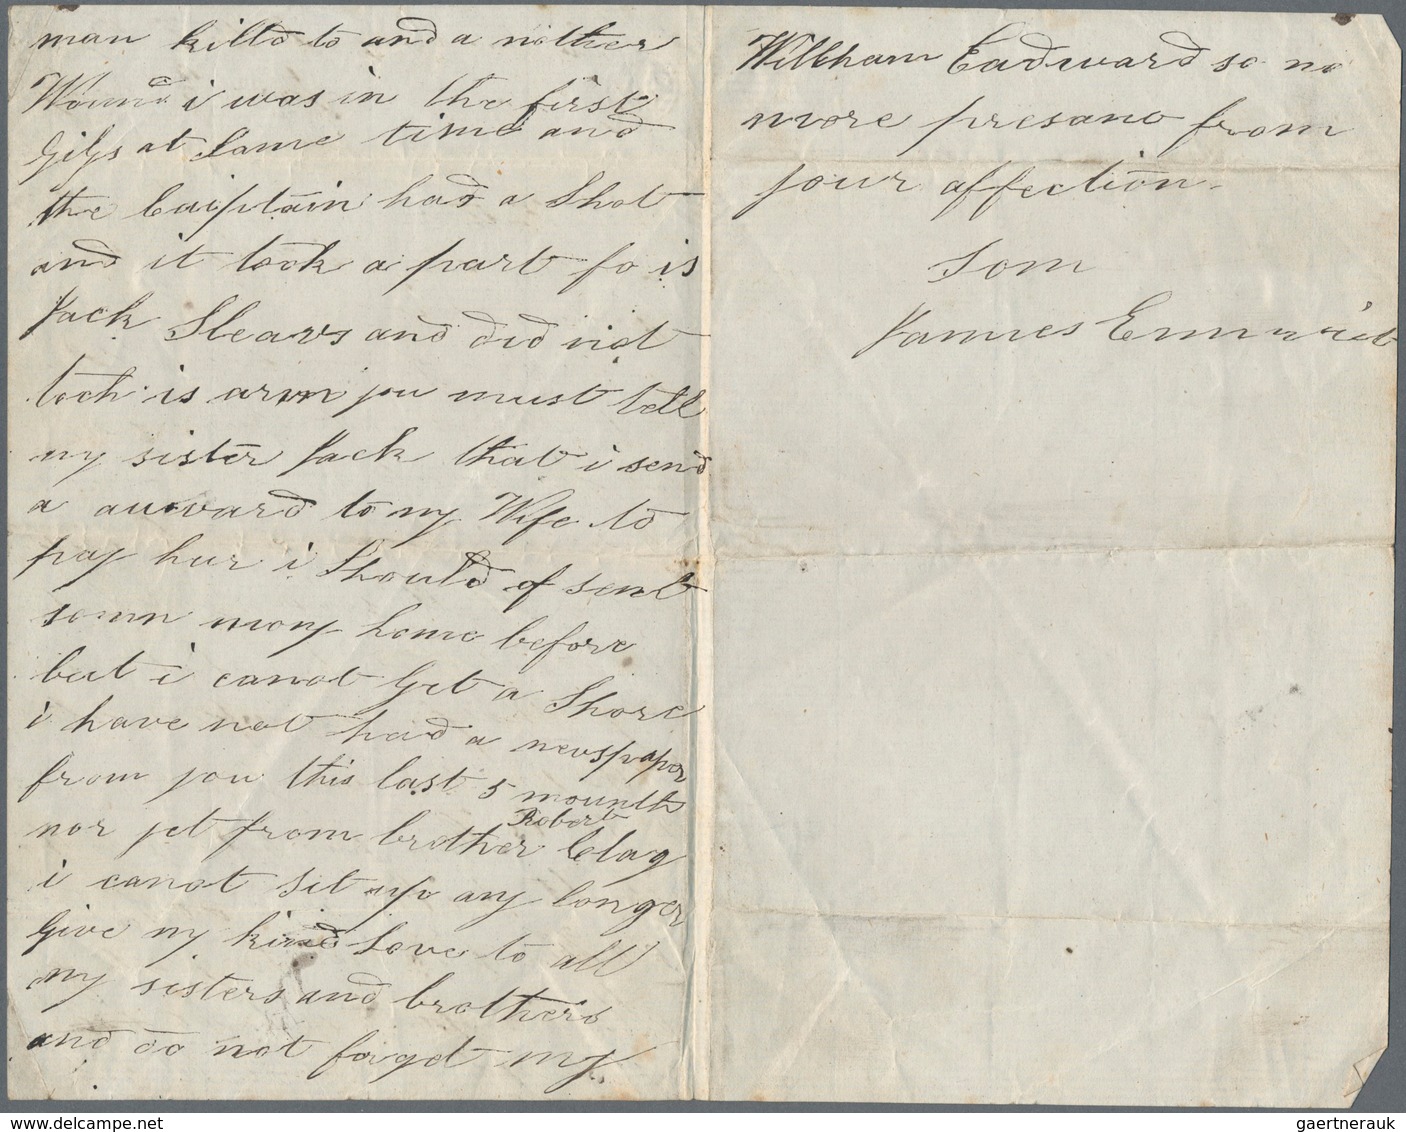 man killd to and a nother
Wound i was in the first
Gigs at Same time and
the Caiptain had a Shot
and it took a part fo is
Jack Sleavs and did not
toch is arm you must tell
my sister Jack that i send
a auward to my Wife to
pay hur i Should of sent
somn mony home before
but i canot Get a Shore
i have not had a newspaper
from you this last 5 mounths
Robert
nor yet from brother Clag
i canot sit up any longer
Give my kind Love to all
my sisters and brothers
and do not forget my
William Eadward so no
more presano from
your affection
Son
James
delcampe.net
gaertnerauk